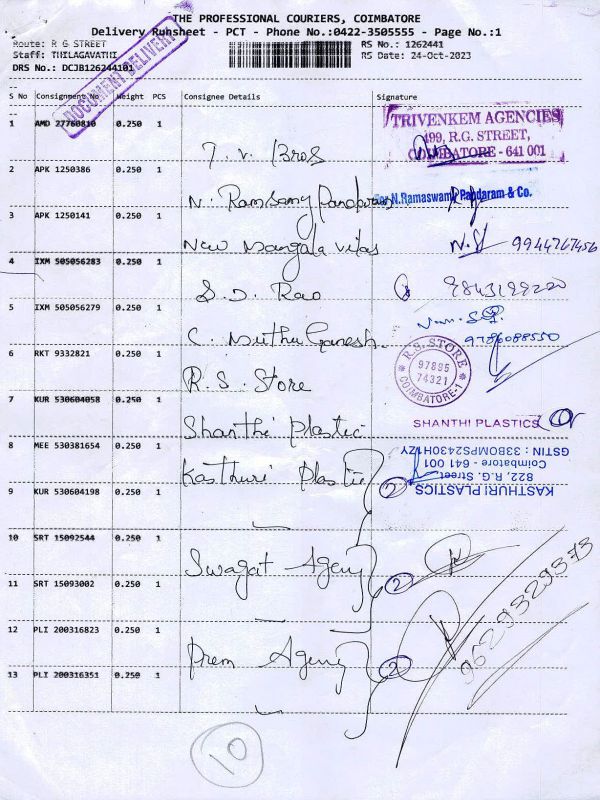 THE PROFESSIONAL COURIERS, COIMBATORE
Delivery Runsheet - PCT - Phone No.:0422-3505555 - Page No.:1
Route: R G STREET
RS No.: 1262441
Staff: THILAGAVATHI
RS Date: 24-Oct-2023
DRS No.: DCJB126244101
DOCUMENT DELIVERY
S No Consignment No Weight PCS Consignee Details Signature
1 AMD 27760810 0.250 1 T. V. Bros
TRIVENKEM AGENCIES
499, R.G. STREET,
COIMBATORE - 641 001
2 APK 1250386 0.250 1 N. Ramsamy Pandaram
For N.Ramaswamy Pandaram & Co.
3 APK 1250141 0.250 1 New Mangala Vilas
9944767456
4 IXM 505056283 0.250 1 S. D. Rao
5 IXM 505056279 0.250 1 C. Muthu Ganesh
6 RKT 9332821 0.250 1 R. S. Store
R.S. STORE
97895
74321
COIMBATORE-1
7 KUR 530604058 0.250 1 Shanthi Plastic
SHANTHI PLASTICS
8 MEE 530381654 0.250 1 Kasthuri Plastic
KASTHURI PLASTICS
822, R.G. Street,
Coimbatore - 641 001
GSTIN : 33BOMPS2430H1ZY
2
9 KUR 530604198 0.250 1
10 SRT 15092544 0.250 1 Swagat Agency
2
11 SRT 15093002 0.250 1
12 PLI 200316823 0.250 1 Prem Agency
2
9629329373
13 PLI 200316351 0.250 1
10